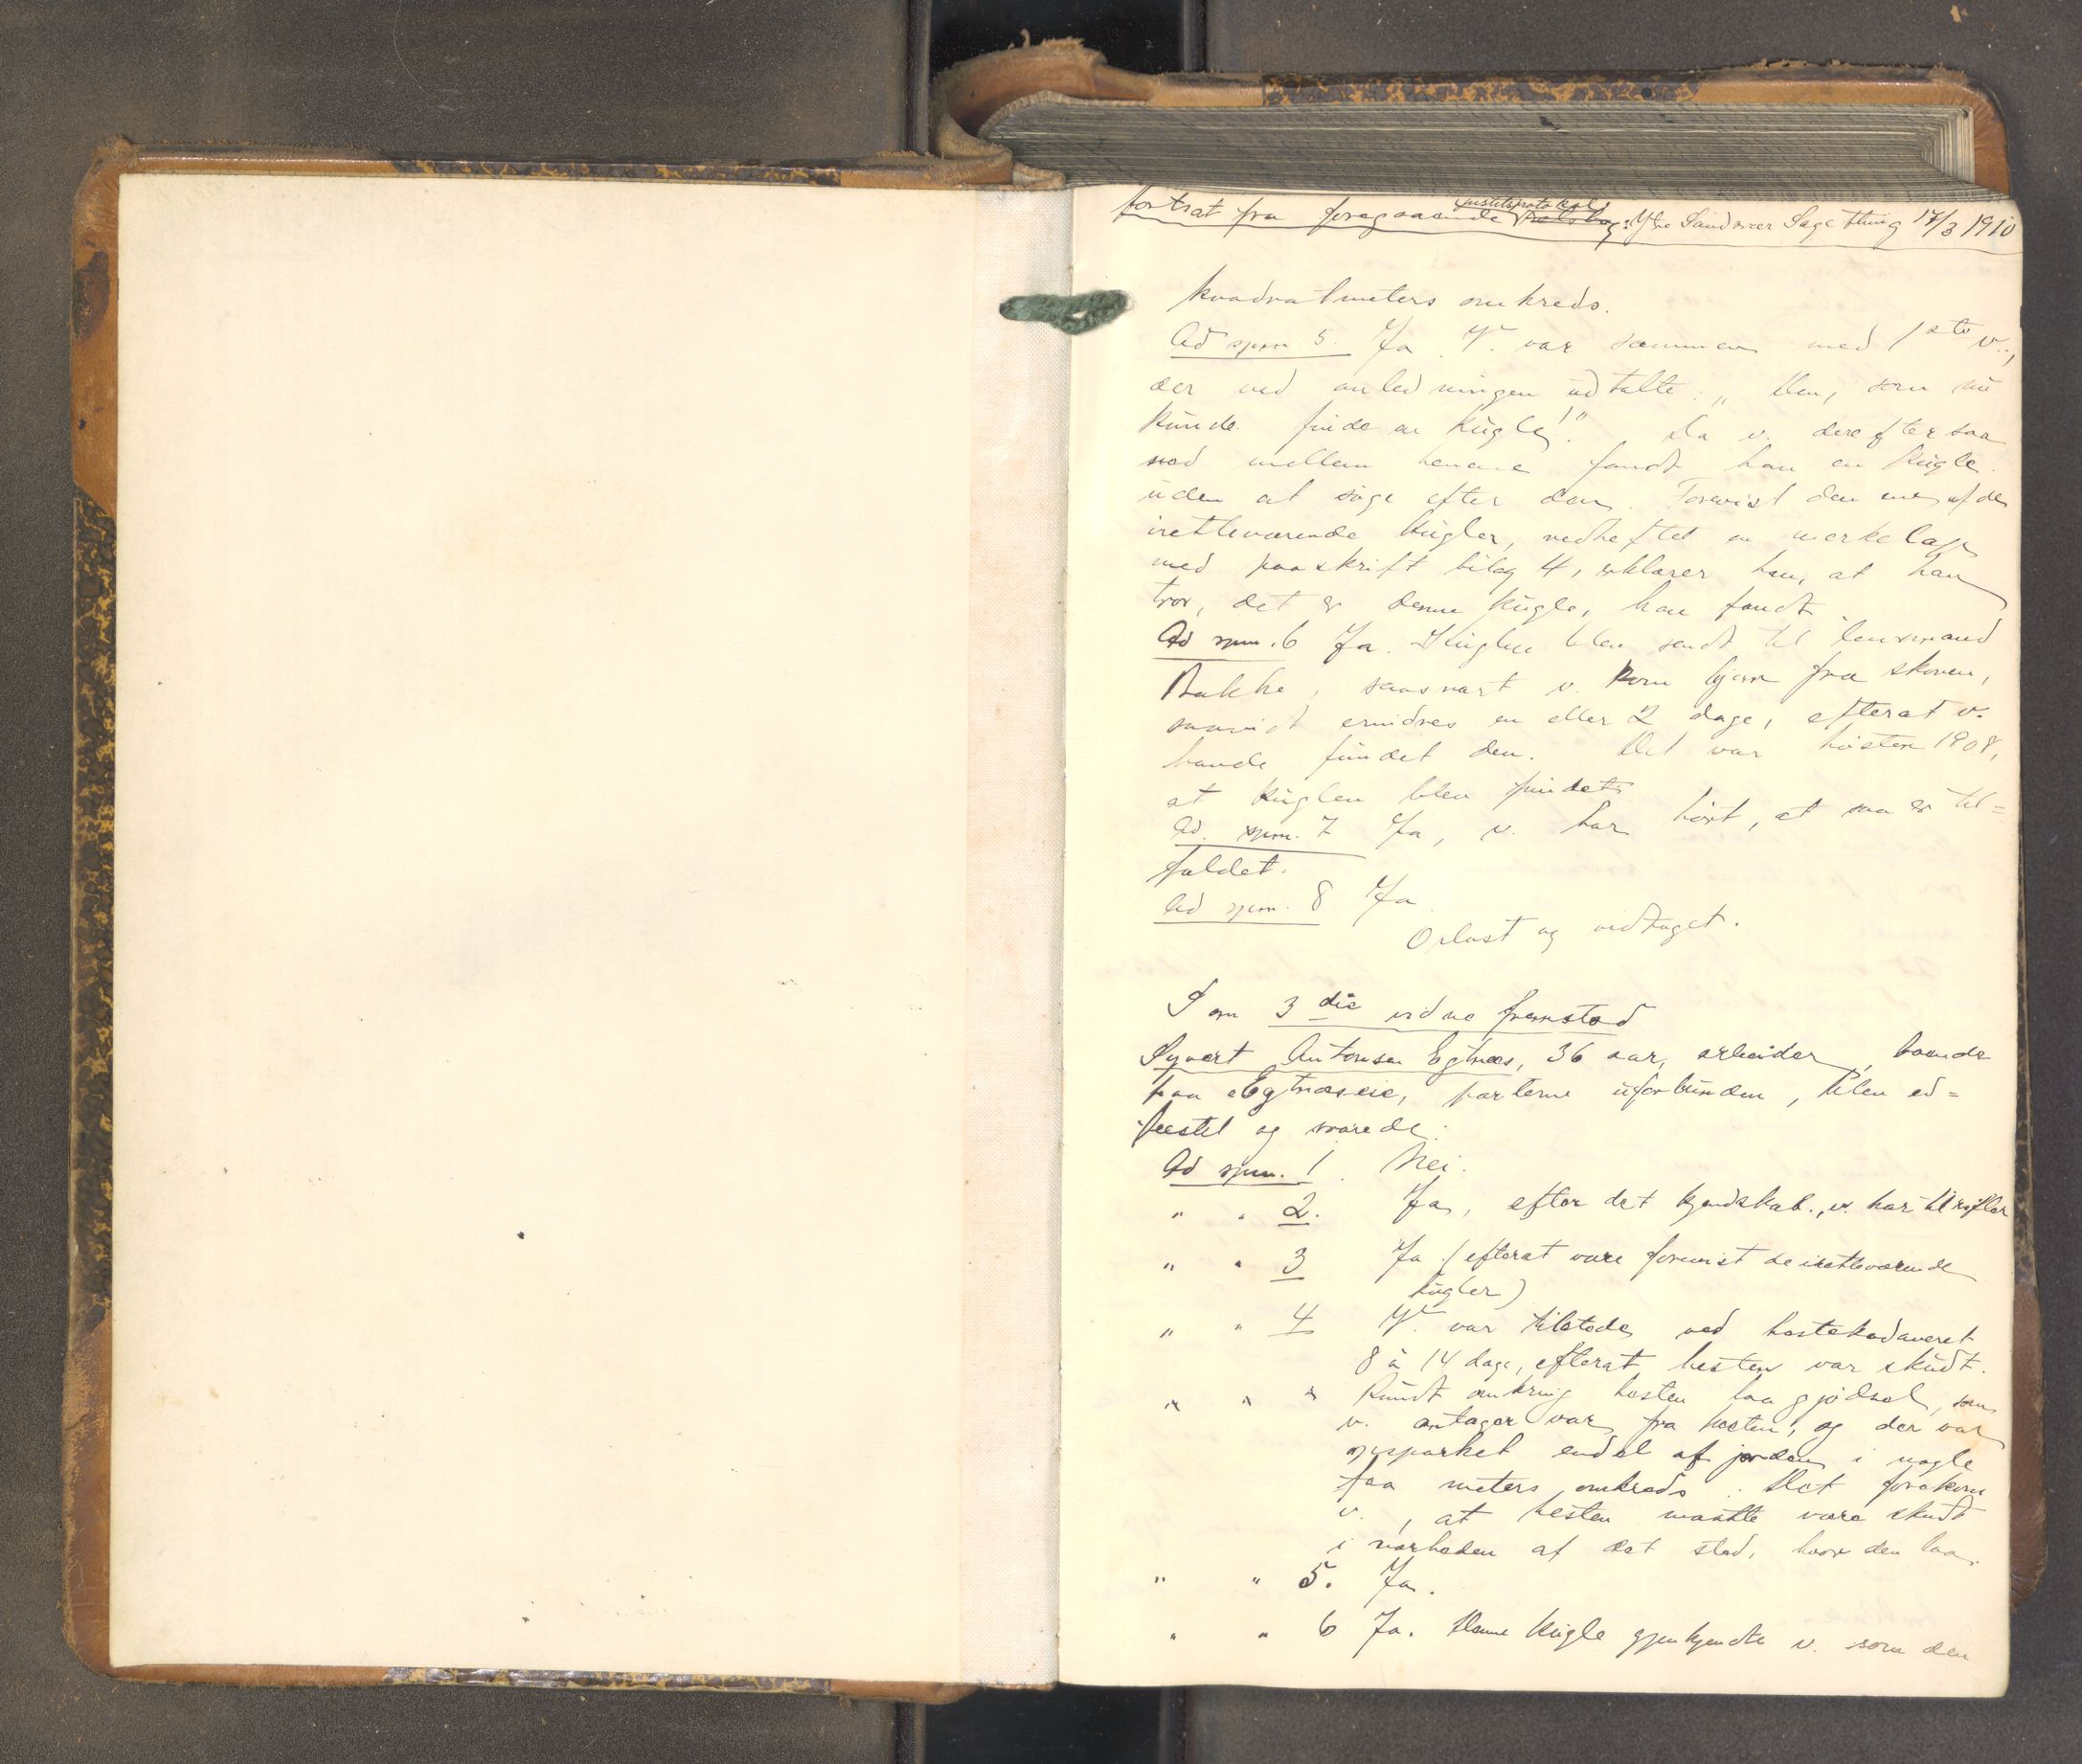 fortsat fra foregaaende justitsprotokol: Ytre Sandsvær Sagething 17/3 1910
kvadratmeters omkreds.
Ad spm 5. Ja. V. var sammen med 1ste v.,
der ved anledningen udtalte: „Den, som nu
kunde finde en kugle!" Da v. derefter saa
ned mellem benene fandt han en kugle
uden at søge efter den. Forevist den ene af de
iretteværende kugler, vedheftet en merkelap
med paaskrift bilag 4, erklærer han, at han
tror, det er denne kugle, han fandt.
Ad spm. 6 Ja. Kuglen blev sendt til lensmand
Bakke, saasnart v. kom hjem fra skoven,
saavidt erindres en eller 2 dage, efterat v.
havde fundet den. Det var høsten 1908,
at kuglen blev fundet.
Ad. spm. 7 Ja, v. har hørt, at saa er til=
fældet.
Ad spm. 8 Ja
Oplæst og vedtaget.
Som 3die vidne fremstod
Syvert Antonsen Egtnæs, 36 aar, arbeider, boende
paa Egtnæseie, parterne uforbunden, blev ed=
fæstet og svarede:
Ad spm. 1. Nei.
" " 2. Ja, efter det kjendskab, v. har til rifler
" " 3 Ja (efterat være forevist de iretteværende
kugler)
" " 4 V. var tilstede ved hestekadaveret
8 à 14 dage, efterat hesten var skudt.
" " " Rundt omkring hesten laa gjødsel, som
v. antager var fra hesten, og der var
opsparket endel af jorden i nogle
faa meters omkreds. Det forekom
v., at hesten maatte være skudt
i nærheden af det sted, hvor den laa.
" " 5. Ja.
" " 6 Ja. Denne kugle gjenkjendte v. som den